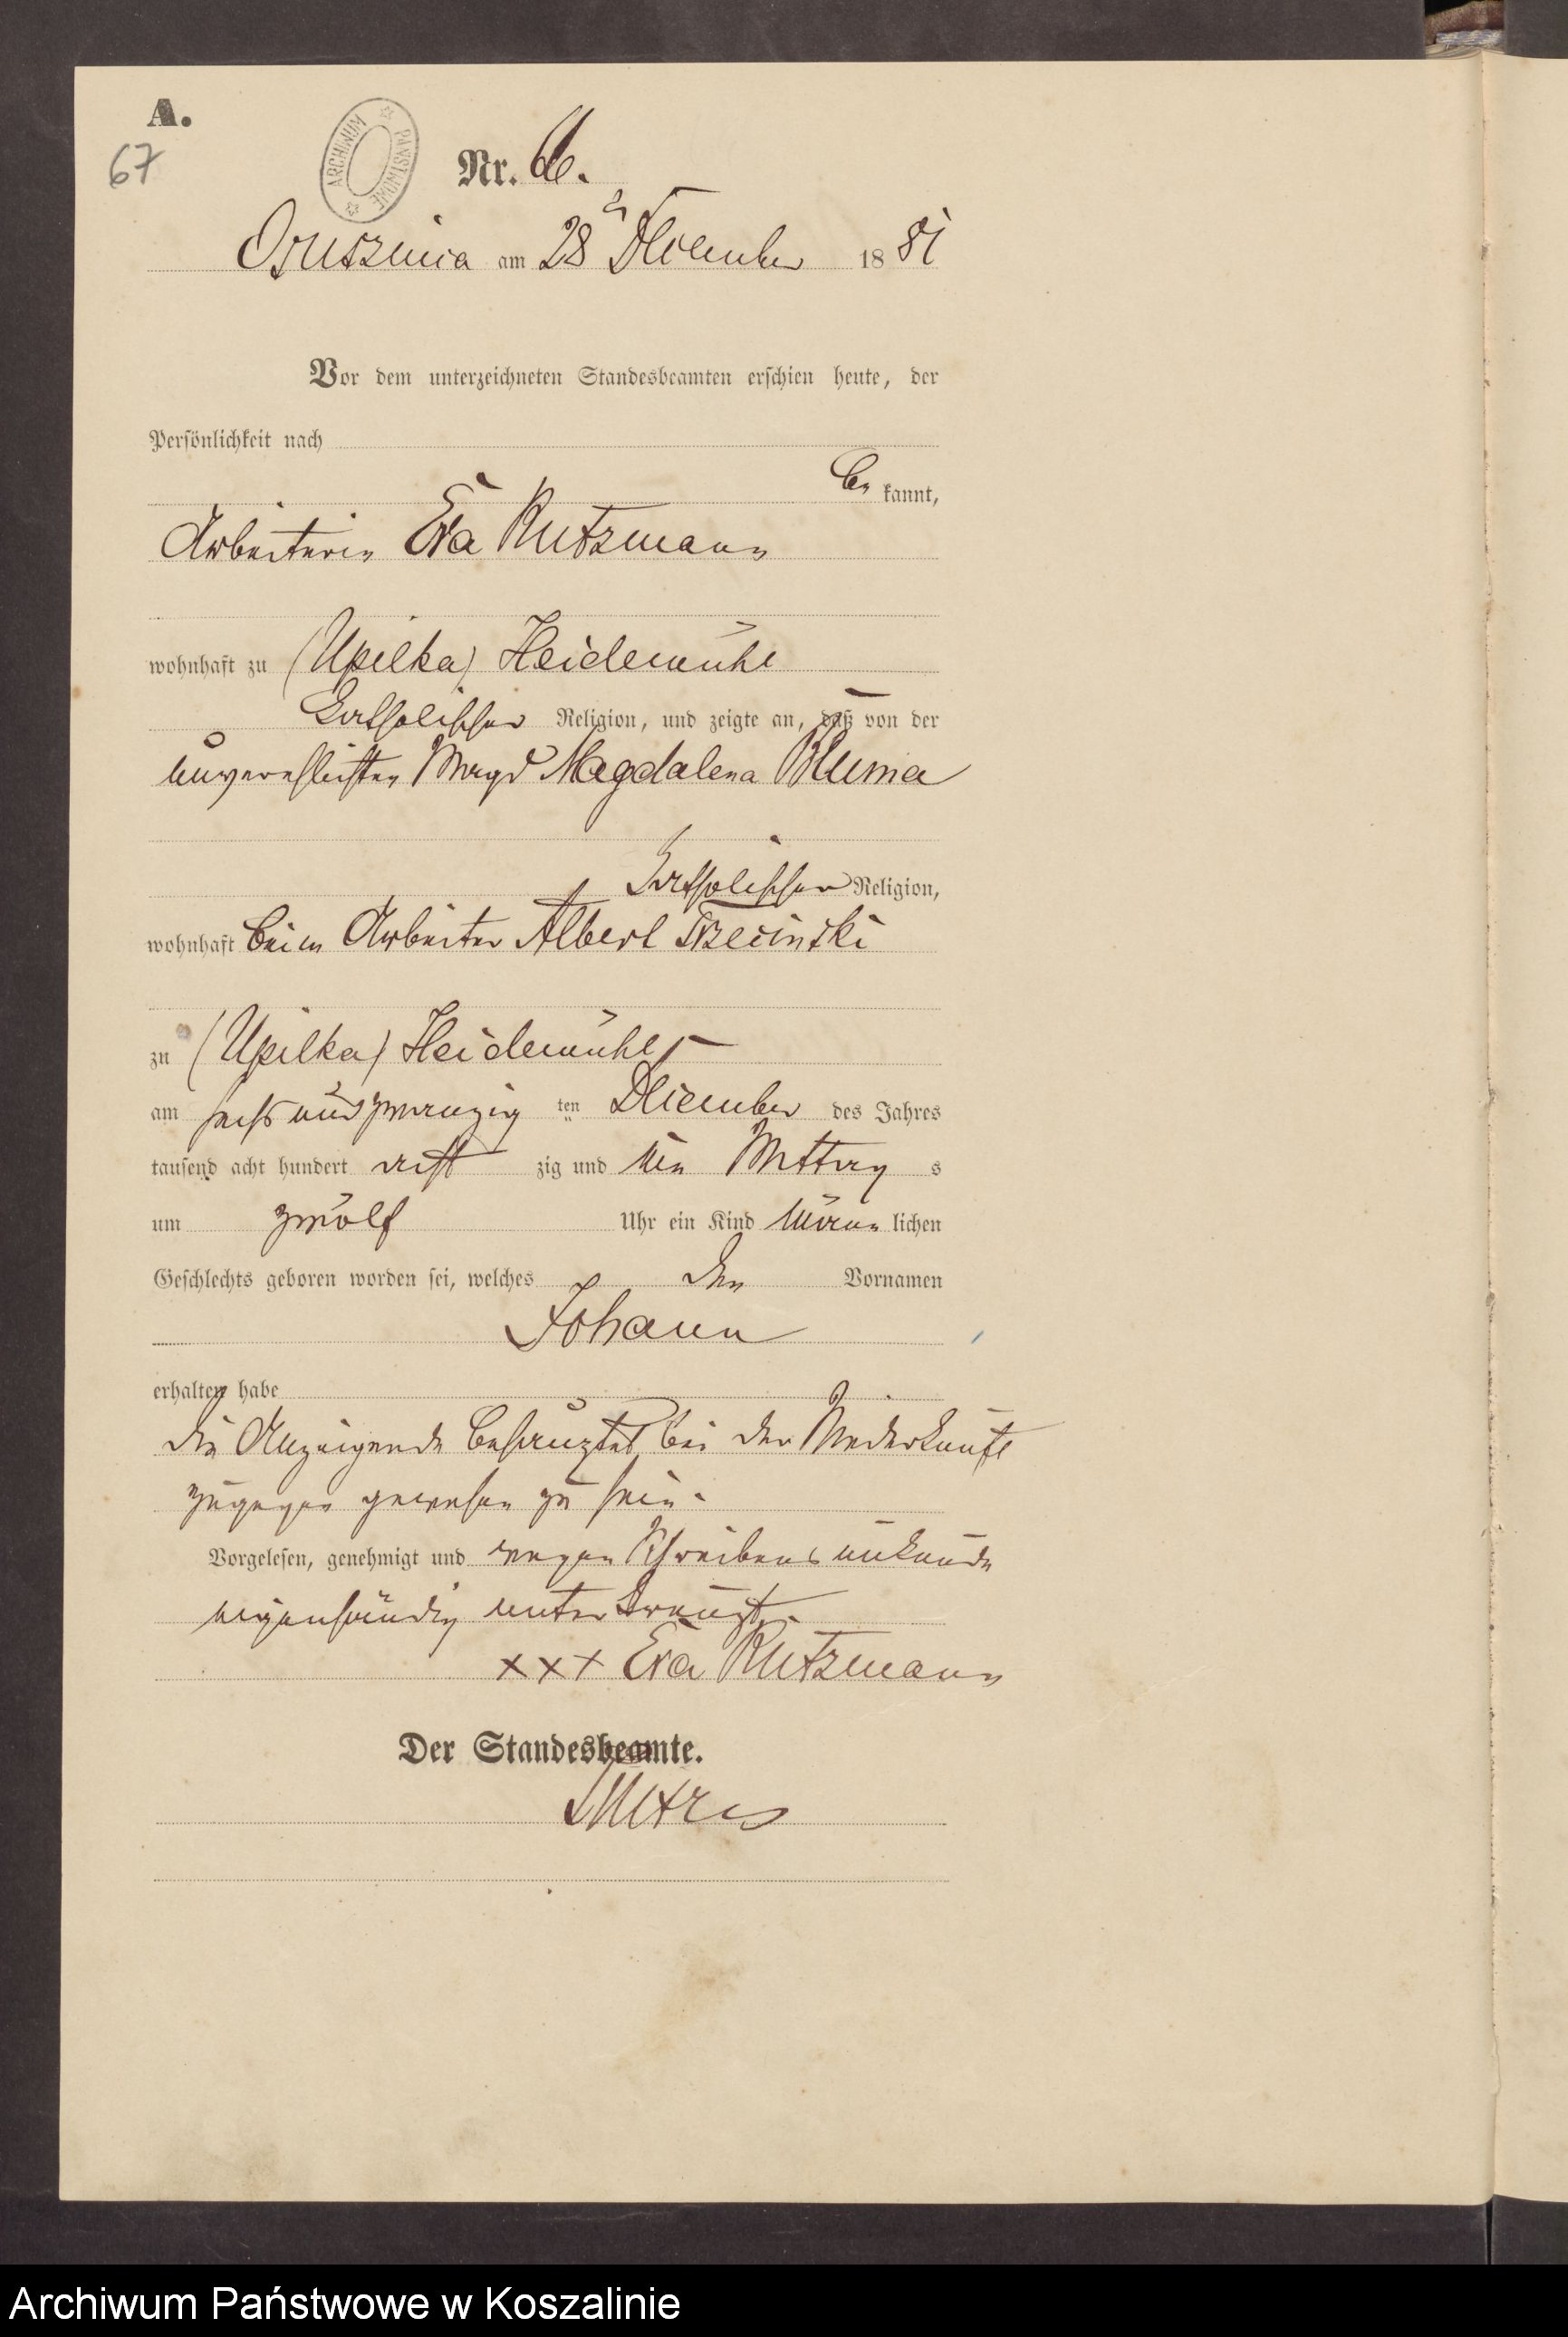 A.
67
ARCHIWUM PAŃSTWOWE
Nr. 66.
Osuszniza am 28 December 1881
Vor dem unterzeichneten Standesbeamten erschien heute, der
Persönlichkeit nach
be kannt,
Arbeiterin Eva Rutzmann
wohnhaft zu (Upilka) Heidemühl
katholischer Religion, und zeigte an, daß von der
unverehlichten Magd Magdalena Bluma
katholischer Religion,
wohnhaft beim Arbeiter Albert Trzecinski
zu (Upilka) Heidemühl
am sechs und zwanzig ten December des Jahres
tausend acht hundert acht zig und ein Mittag s
um zwölf Uhr ein Kind männ lichen
Geschlechts geboren worden sei, welches den Vornamen
Johann
erhalten habe
die Anzeigende behauptet bei der Niederkunft
zugegen gewesen zu sein.
Vorgelesen, genehmigt und wegen Schreibens unkunde
eigenhändig unterkreuzt.
xxx Eva Rutzmann
Der Standesbeamte.
Archiwum Państwowe w Koszalinie